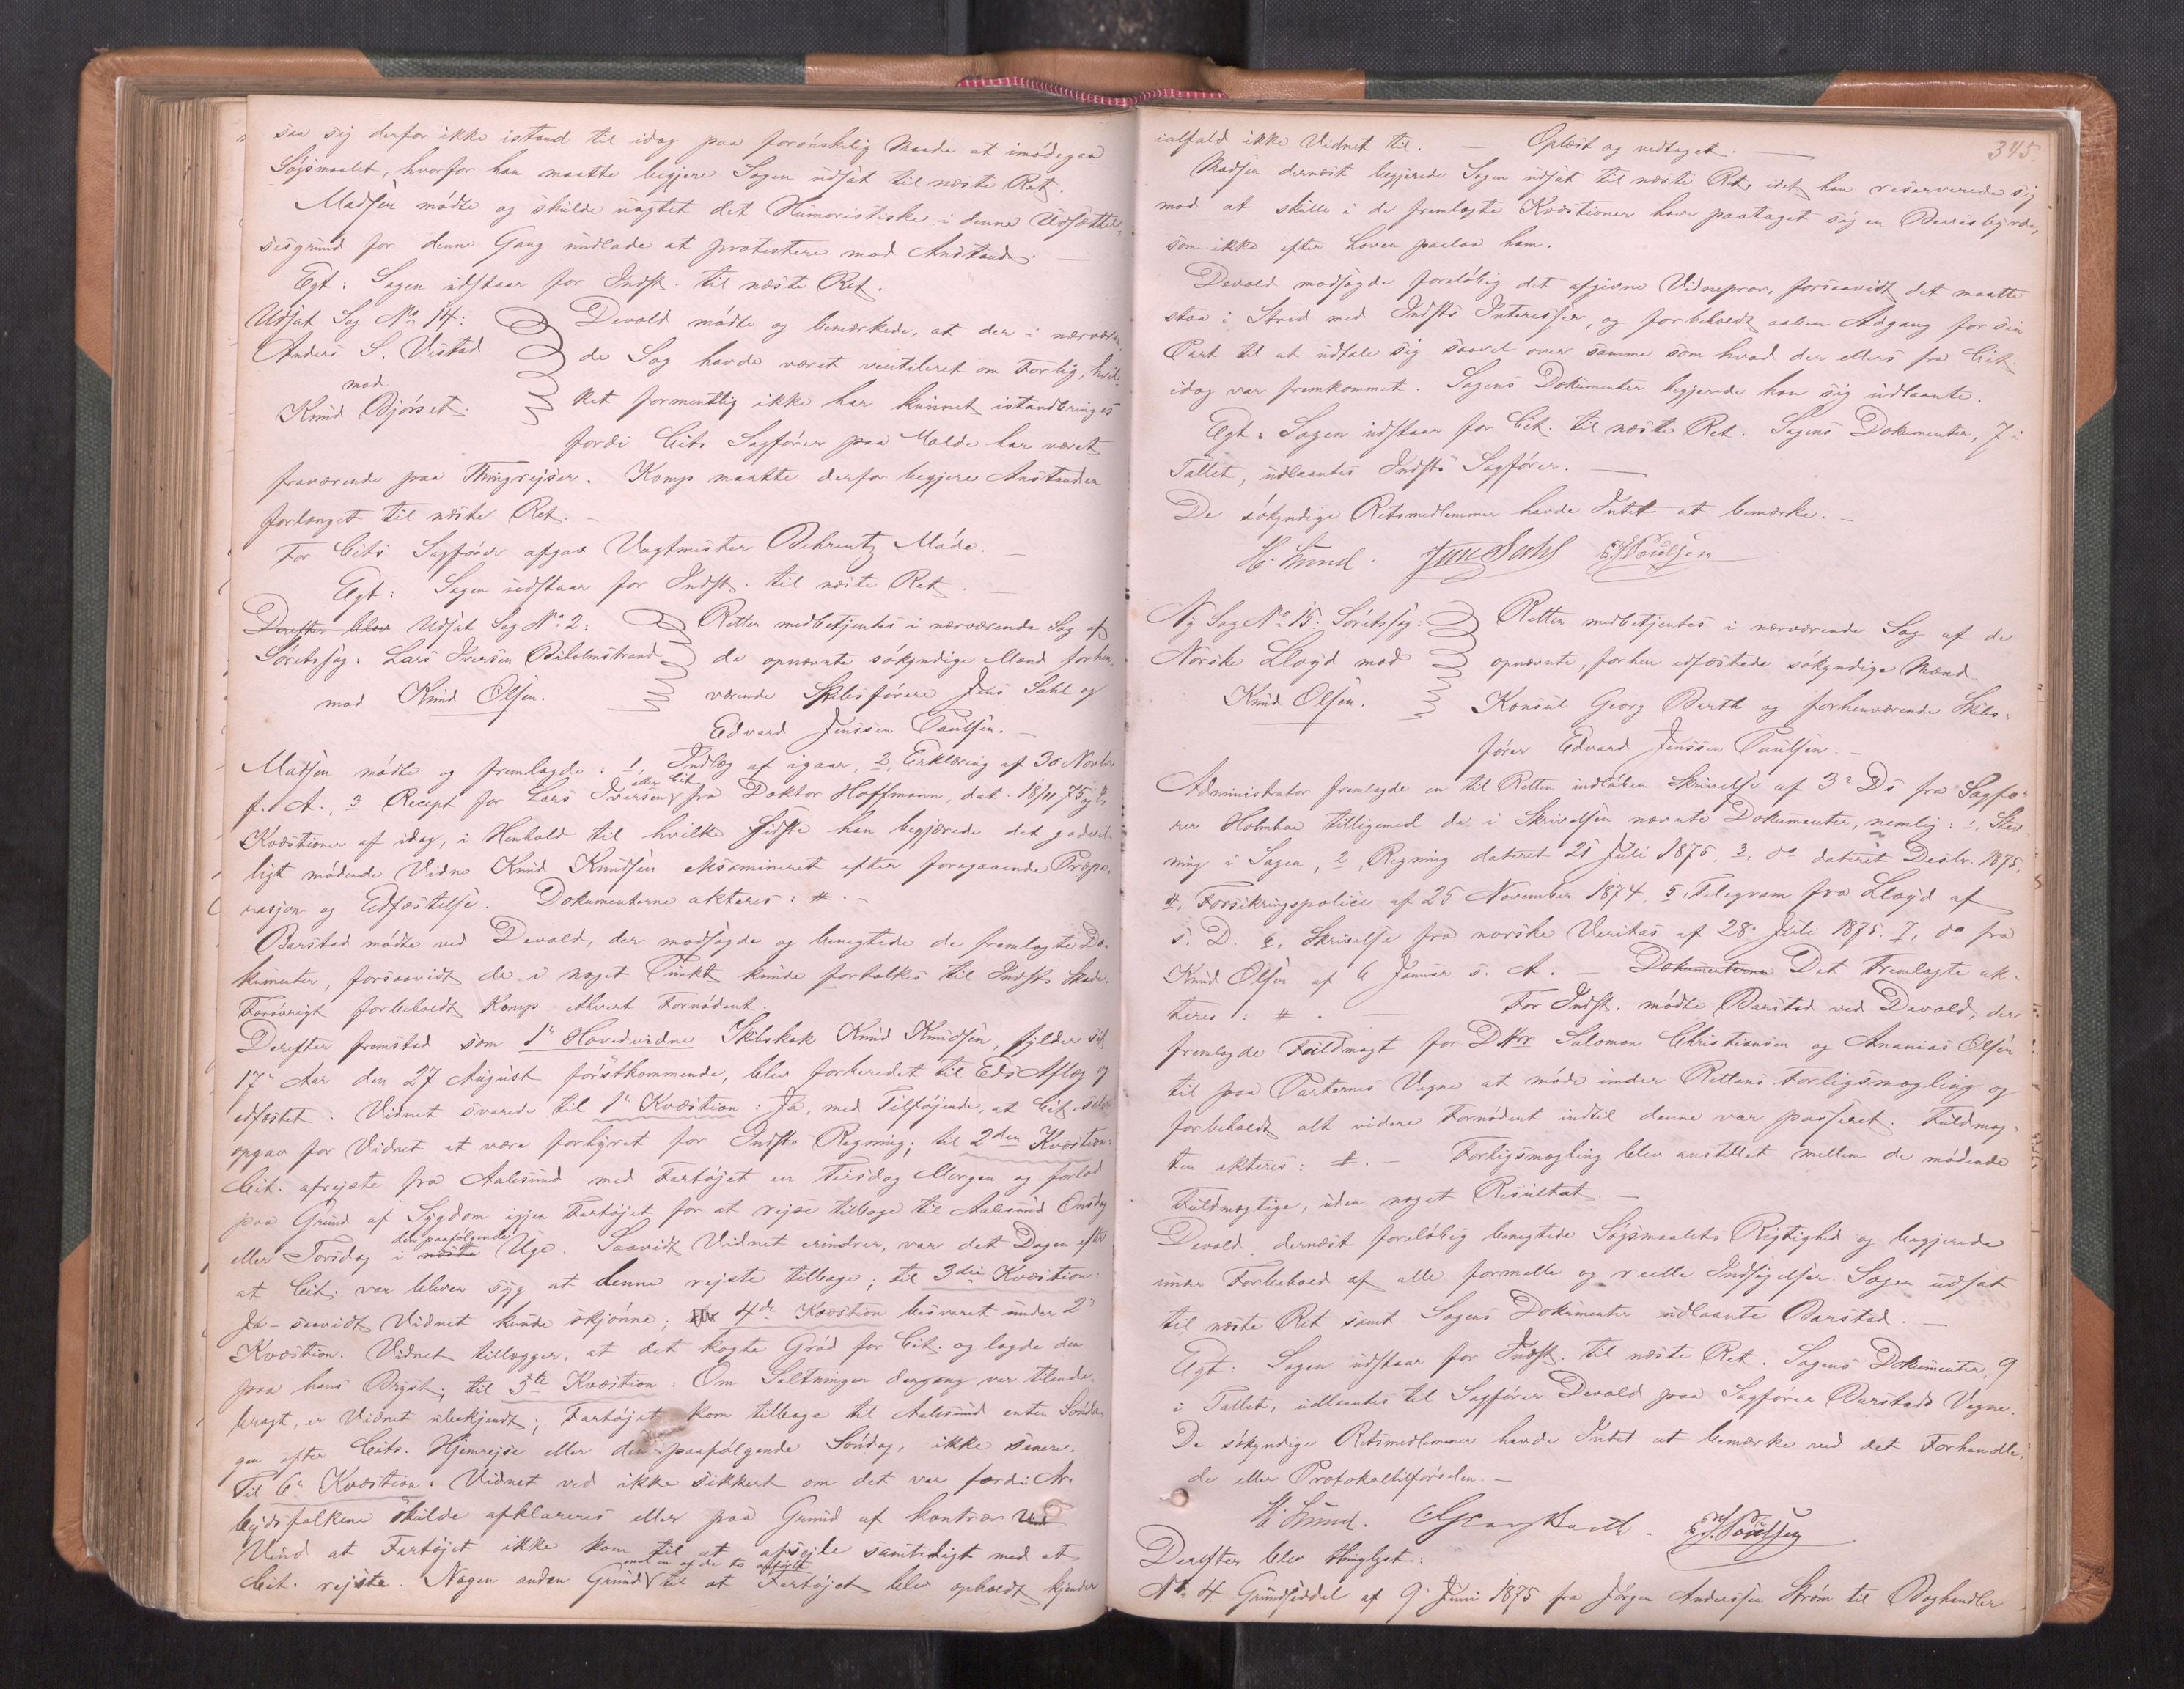 saa sig derfor ikke istand til idag paa forønskelig Maade at imødegaa
Søgsmaalet, hvorfor han maatte begjere Sagen udsat til næste Ret.
Madsen mødte og skulde uagtet det Humoristiske i denne Udsættel-
sesgrund for denne Gang undlade at protestere mod Anstand. —
Egt: Sagen udstaar for Indst. til næste Ret.
Udsat Sag No 14:
Anders S. Vistad
mod
Knud Bjørset.
Devold mødte og bemærkede, at der i nærværen-
de Sag havde været ventileret om Forlig, hvil-
ket formentlig ikke har kunnet istandbringes
fordi Cits Sagfører paa Molde har været
fraværende paa Thingrejser. Komp maatte derfor begjere Anstanden
forlænget til næste Ret. —
For Cits Sagfører afgav Vagtmester Behrentz Møde. —
Egt: Sagen udstaar for Indst. til næste Ret. —
Derefter blev Udsat Sag No 2:
Søretssag: Lars Iversen Buholmstrand
mod Knud Olsen.
Retten medbetjentes i nærværende Sag af
de opnævnte søkyndige Mænd forhen-
værende Skibsførere Jens Dahl og
Edvard Jenssen Paulsen. —
Madsen mødte og fremlagde: 1, Indlæg af igaar, 2, Erklæring af 30 Novbr
f. A., 3 Recept for Lars Iversen eller Cit. fra Doktor Hoffmann, dat. 18/11 75 og 4,
Kvæstioner af idag, i Henhold til hvilke sidste han begjærede det godvil-
ligt mødende Vidne Knud Knudsen eksamineret efter foregaaende Præpa-
rasjon og Edfæstelse. Dokumenterne akteres: #. —
Barstad mødte ved Devold, der modsagde og benegtede de fremlagte Do-
kumenter, forsaavidt de i noget Punkt kunde fortolkes til Indsts Skade.
Forøvrigt forbeholdt Komp ethvert Fornødent.
Derefter fremstod som 1e Hovedvidne Skibskok Knud Knudsen, fylder sit
17de Aar den 27 August førstkommende, blev forberedet til Eds Aflæg og
edfæstet. Vidnet svarede til 1e Kvæstion: Ja, med Tilføjende, at Cit. selv
opgav for Vidnet at være forhyret for Indsts Regning; til 2den Kvæstion:
Cit. afrejste fra Aalesund med Fartøjet en Tirsdag Morgen og forlod
paa Grund af Sygdom igjen Fartøjet for at rejse tilbage til Aalesund Onsdag
eller Torsdag i næste den paafølgende Uge. Saavidt Vidnet erindrer, var det Dagen efter
at Cit. var bleven syg at denne rejste tilbage; til 3die Kvæstion:
Ja – saavidt Vidnet kunde skjønne; 4de Kvæstion besvaret under 2den
Kvæstion. Vidnet tillægger, at det kogte Grød for Cit. og lagde den
paa hans Bryst; til 5te Kvæstion: Om Saltningen dengang var tilende-
bragt, er Vidnet ubekjendt; Fartøjet kom tilbage til Aalesund enten Sønda-
gen efter Cits. Hjemrejse eller den paafølgende Søndag, ikke senere.
Til 6te Kvæstion: Vidnet ved ikke sikkert om det var fordi Ar-
bejdsfolkene skulde afklareres eller paa Grund af kontrær
Vind at Fartøjet ikke kom til at afsejle samtidigt med at
Cit. rejste. Nogen anden Grund mod en af de to anførte til at Fartøjet blev opholdt kjender
345.
ialfald ikke Vidnet til. — Oplæst og vedtaget. —
Madsen dernæst begjerede Sagen udsat til næste Ret, idet han reserverede sig
mod at skulle i de fremlagte Kvæstioner have paataget sig en Bevisbyrde,
som ikke efter Loven paalaa ham.
Devold modsagde foreløbig det afgivne Vidneprov, forsaavidt det maatte
staa i Strid med Indsts Interesser, og forbeholdt aaben Adgang for sin
Part til at udtale sig saavel over samme som hvad der ellers fra Cit.
idag var fremkommet. Sagens Dokumenter begjerede han sig udlaante.
Egt: Sagen udstaar for Cit. til næste Ret. Sagens Dokumenter, 7 i
Tallet, udlaantes Indsts Sagfører. —
De søkyndige Retsmedlemmer havde Intet at bemærke. —
H. Lund. Jens Dahl E. J. Paulsen
Ny Sag No 15. Søretssag:
Norske Lloyd mod
Knud Olsen.
Retten medbetjentes i nærværende Sag af de
opnævnte, forhen edfæstede søkyndige Mænd
Konsul Georg Barth og forhenværende Skibs-
fører Edvard Jenssen Paulsen. —
Administrator fremlagde en til Retten indløben Skrivelse af 3die Ds fra Sagfø-
rer Holmboe tilligemed de i Skrivelsen nævnte Dokumenter, nemlig: 1, Stev-
ning i Sagen, 2, Regning dateret 21 Juli 1875, 3, do dateret Desbr. 1875,
4, Forsikringspolice af 25 November 1874, 5, Telegram fra Lloyd af
s. D. 6, Skrivelse fra norske Veritas af 28 Juli 1875, 7, do fra
Knud Olsen af 6 Januar s. A. — Dokumenterne Det Fremlagte ak-
teres: #. — For Indst. mødte Barstad ved Devold, der
fremlagde Fuldmagt for DHrr Salomon Christiansen og Ananias Olsen
til paa Parternes Vegne at møde under Rettens Forligsmægling og
forbeholdt alt videre Fornødent indtil denne var passeret. Fuldmag-
ten akteres: #. — Forligsmægling blev anstillet mellem de mødende
Fuldmægtige, uden noget Resultat. —
Devold dernæst foreløbig benegtede Søgsmaalets Rigtighed og begjerede
under Forbehold af alle formelle og reelle Indsigelser Sagen udsat
til næste Ret samt Sagens Dokumenter udlaante Barstad. —
Egt: Sagen udstaar for Indst. til næste Ret. Sagens Dokumenter, 9
i Tallet, udlaantes til Sagfører Devold paa Sagfører Barstads Vegne.
De søkyndige Retsmedlemmer havde Intet at bemærke ved det Forhandle-
de eller Protokoltilførselen. —
H. Lund. Georg Barth. E. J. Paulsen
Derefter blev thinglyst:
No 4 Grundseddel af 9 Juni 1875 fra Jørgen Anderssen Strøm til Boghandler